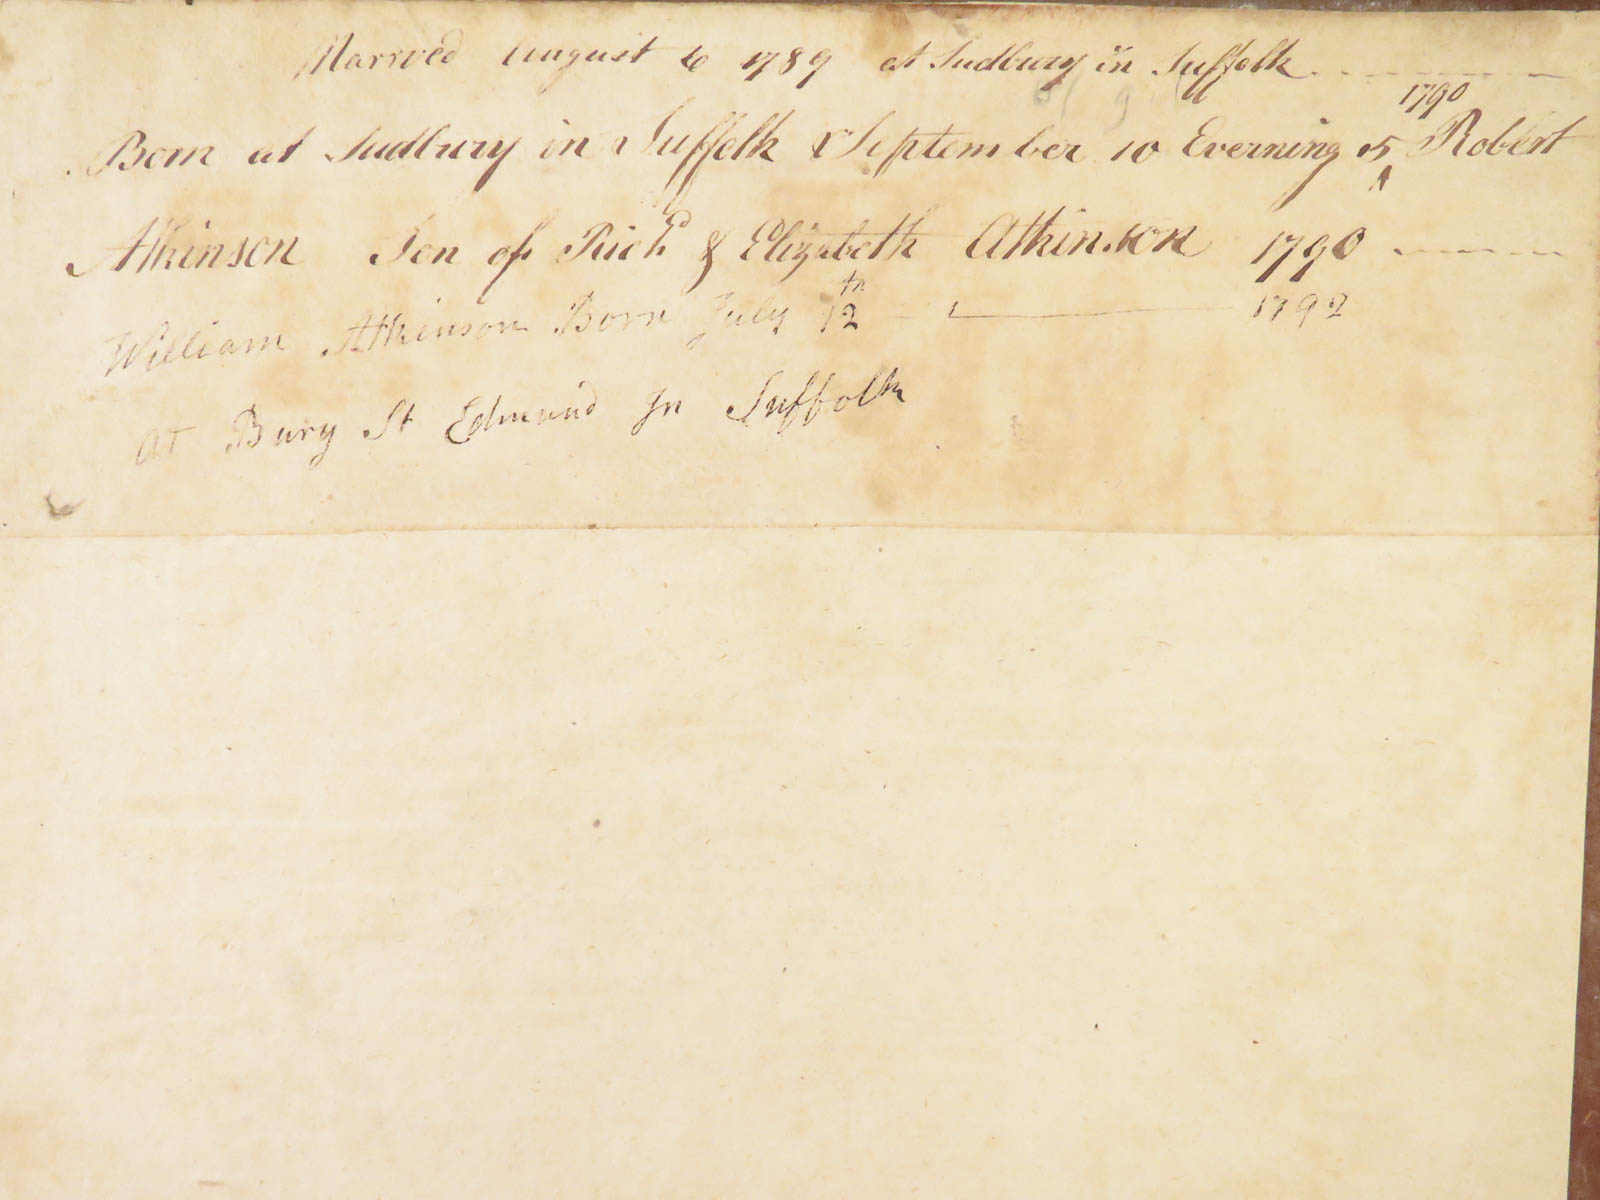 Marrved August 6 1789 at Sudbury in Suffolk
1790
Born at Sudbury in Suffolk September 10 Everning 5 Robert
Atkinson Son of Richd & Elizabeth Atkinson 1790
William Atkinson Born July 12th 1792
At Bury St Edmund In Suffolk